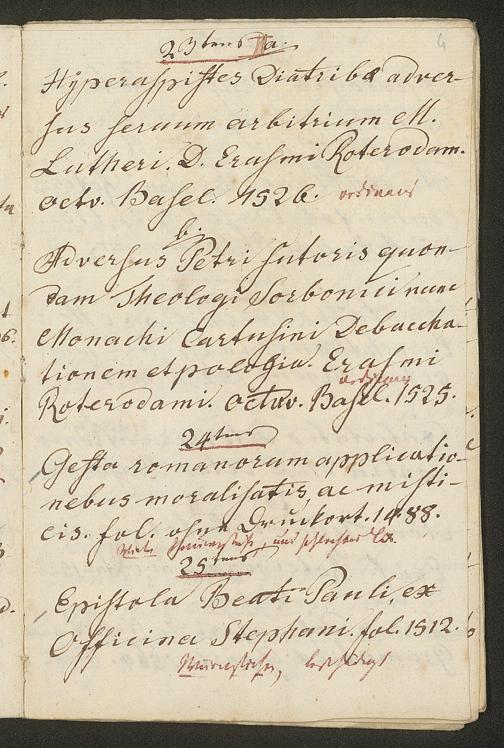 4
23tens a.
Hÿperaspistes Diatribæ adver-
sus seruum arbitrium M.
Lutheri. D. Erasmi Roterodam.
octv. Basel. 1526. ordinair
b.
Adversus Petri Sutoris quon-
dam Theologi Sorbonici nunc
Monachi Cartusini Debaccha-
tionem etpologia. Erasmi
ordinair
Roterodami. octav. Basel. 1525.
24tens
Gesta romanorum applicatio-
nebus moralisatis, ac misti-
cis. fol. ohne Druckort. 1488.
und schlechter
25tens
Epistola Beati Pauli, ex
Officina Stephani. fol. 1512.
Wurmstiche, beschädigt